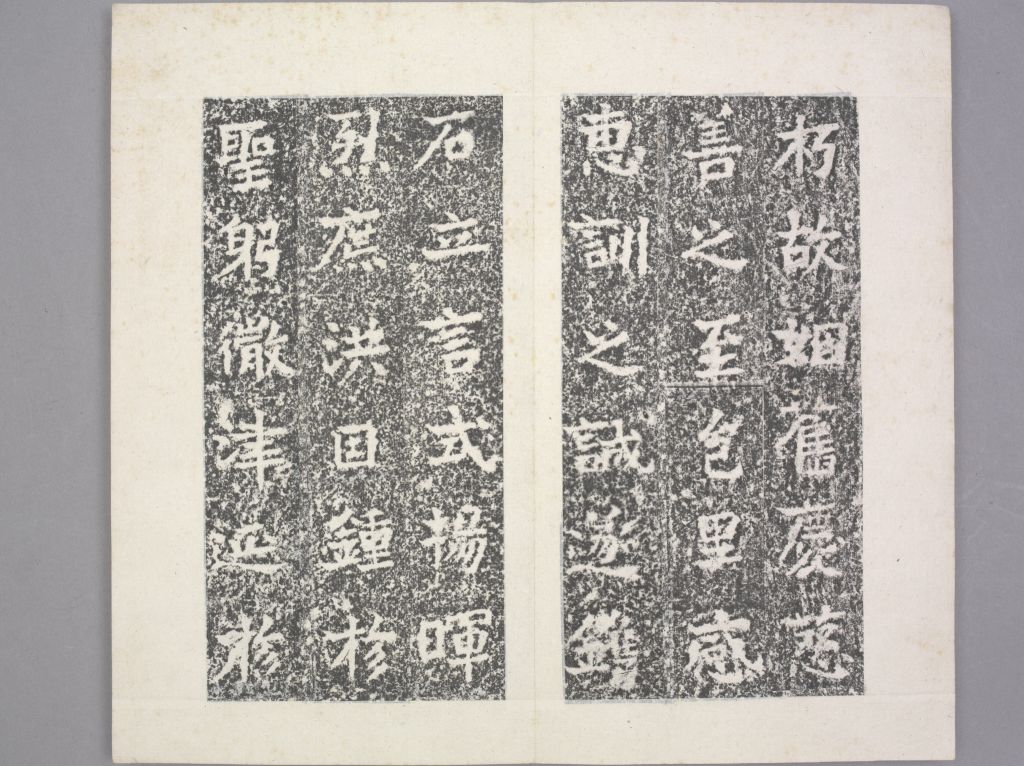 朽故姻舊慶慈
善之至邑里感
惠訓之誠遂鐫
石立言式揚暉
烈庶洪因鍾於
聖躬徽津延於